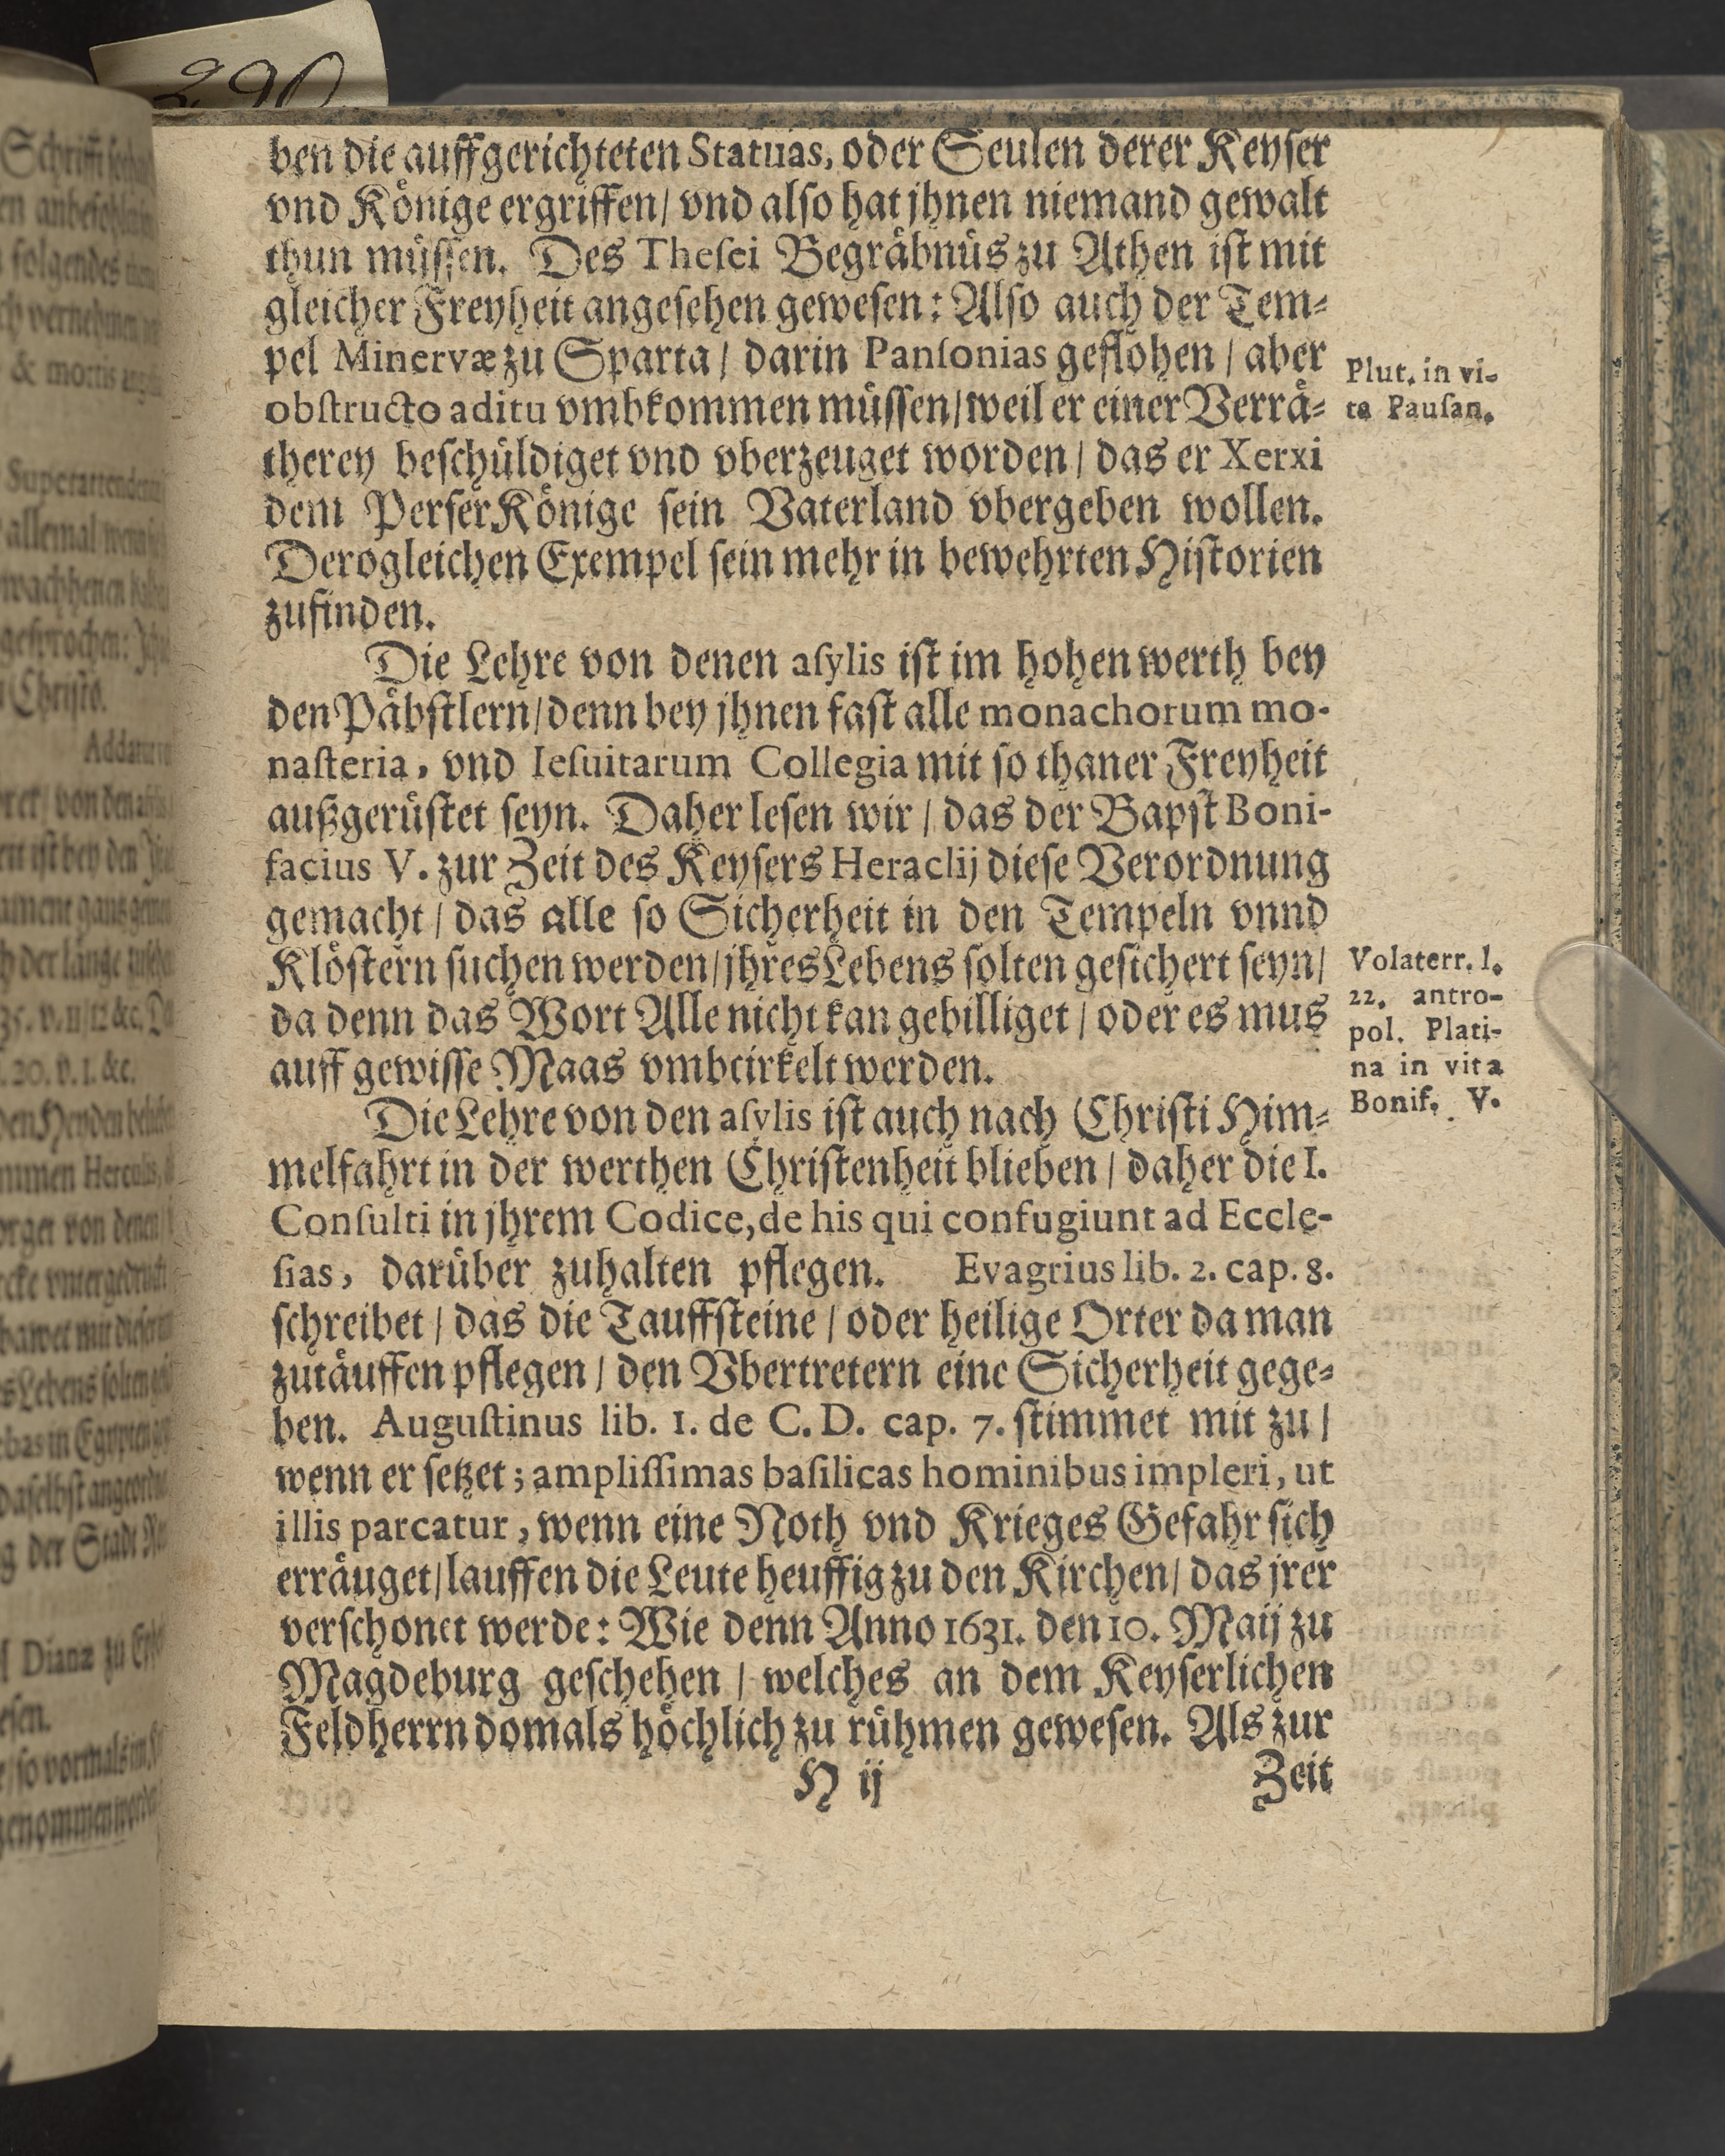 290
ben die auffgerichteten Statuas, oder Seulen derer Keyſer
vnd Koͤnige ergriffen/ vnd alſo hat jhnen niemand gewalt
thun muͤſſen. Des Theſei Begraͤbnuͤs zu Athen iſt mit
gleicher Freyheit angeſehen geweſen: Alſo auch der Tem⸗
pel Minervæ zu Sparta / darin Panſonias geflohen / aber
obſtructo aditu vmbkommen muͤſſen/ weil er einer Verraͤ⸗
therey beſchuͤldiget vnd vberzeuget worden / das er Xerxi
dem Perſer Koͤnige ſein Vaterland vbergeben wollen.
Derogleichen Exempel ſein mehr in bewehrten Hiſtorien
zufinden.
Plut. in vi-
ta Pauſan.
Die Lehre von denen aſylis iſt im hohen werth bey
den Paͤbſtlern/ denn bey jhnen faſt alle monachorum mo-
naſteria, vnd Ieſuitarum Collegia mit ſo thaner Freyheit
außgeruͤſtet ſeyn. Daher leſen wir / das der Bapſt Boni-
facius V. zur Zeit des Keyſers Heraclij dieſe Verordnung
gemacht / das alle ſo Sicherheit in den Tempeln vnnd
Kloͤſtern ſuchen werden/ jhres Lebens ſolten geſichert ſeyn/
da denn das Wort Alle nicht kan gebilliget / oder es mus
auff gewiſſe Maas vmbcirkelt werden.
Volaterr. l.
22. antro-
pol. Plati-
na in vita
Bonif. V.
Die Lehre von den aſylis iſt auch nach Chriſti Him⸗
melfahrt in der werthen Chriſtenheit blieben / daher die I.
Conſulti in jhrem Codice, de his qui confugiunt ad Eccle-
ſias, daruͤber zuhalten pflegen. Evagrius lib. 2. cap. 8.
ſchreibet / das die Tauffſteine / oder heilige Orter da man
zutaͤuffen pflegen / den Vbertretern eine Sicherheit gege⸗
ben. Auguſtinus lib. 1. de C. D. cap. 7. ſtimmet mit zu /
wenn er ſetzet; ampliſſimas baſilicas hominibus impleri, ut
illis parcatur, wenn eine Noth vnd Krieges Gefahr ſich
erraͤuget/ lauffen die Leute heuffig zu den Kirchen/ das jrer
verſchonet werde: Wie denn Anno 1631. den 10. Maij zu
Magdeburg geſchehen / welches an dem Keyſerlichen
Feldherrn domals hoͤchlich zu ruͤhmen geweſen. Als zur
H ij
Zeit